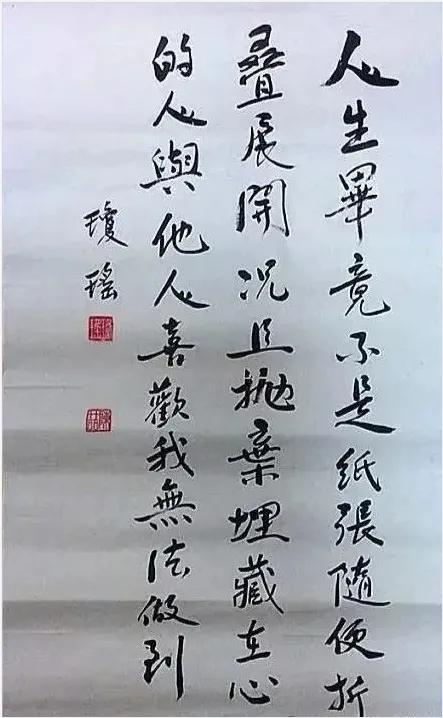 人生畢竟不是纸張隨便折
疊展開况且抛棄埋藏在心
的人與他人喜歡我無法做到
瓊瑤